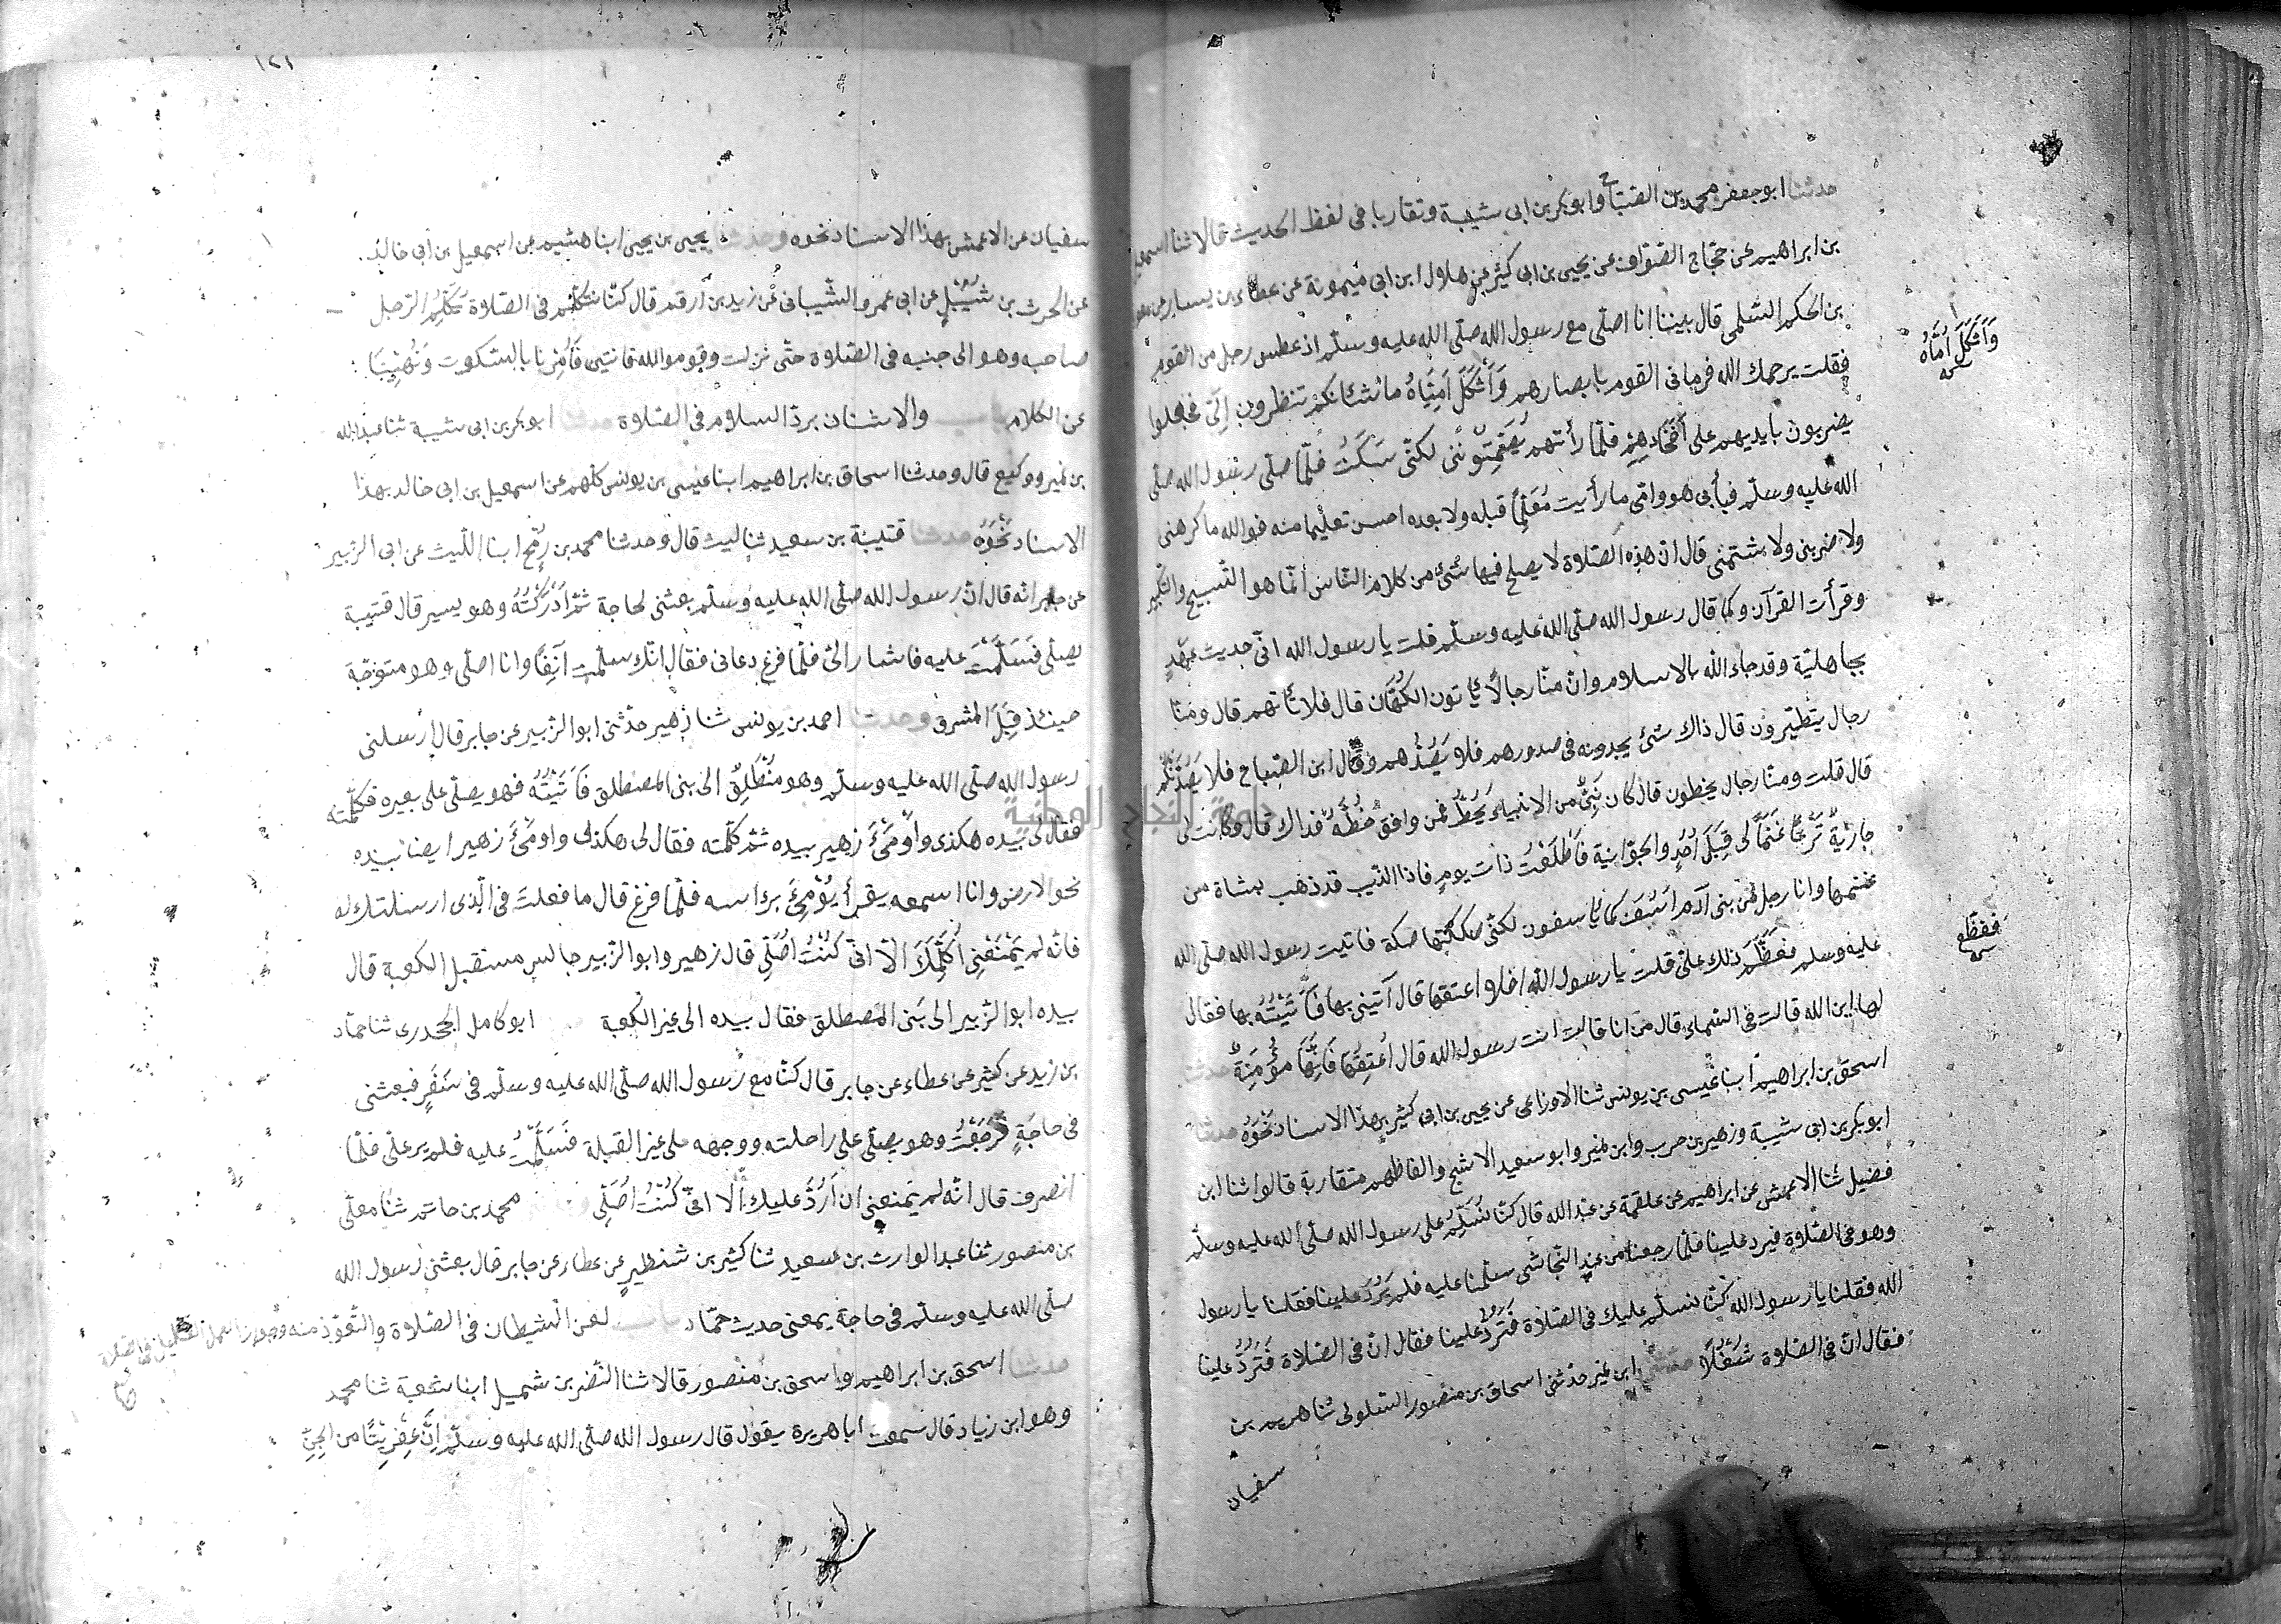 حدثنا ابو جعفر محمد بن الصباح وابو بكر بن ابى شيبة وتقاربا فى لفظ الحديث قالا ثنا اسمعيل
بن ابراهيم عن حجاج الصواف عن يحيى بن ابى كثير عن هلال ابن ابى ميمونة عن عطاء بن يسار عن معوية
بن الحكم السلمى قال بيننا انا اصلى مع رسول الله صلى الله عليه وسلم اذ عطس رجل من القوم
فقلت يرحمك الله فرمانى القوم بابصارهم وَاَثُكْلَ اُمِّيَاهُ ما شانكم تنظرون اِلىّ فجعلوا
وَاَثُكْلَ اُمَّاهُ
يضربون بايديهم على أفخاذهم فلمّا رأتهم يُصَمِّتُوْنَنى لكنى سَكَتُّ فلمّا صلى رسول الله صلى
الله عليه وسلم فبأبى هو وامّى ما رأيت مُعَلِّمًا قبله ولا بعده احسن تعليما منه فوالله ما كرهنى
ولا ضربنى ولا شتمنى قال ان هذه الصلاة لا يصلح فيها شئ من كلام الناس انما هو التسبيح والتكبير
وقرأت القرآن وكما قال رسول الله صلى الله عليه وسلم قلت يا رسول الله انى حديث عهد
بجاهلية وقد جاء الله بالاسلام وان منا رجالاً يأتون الكُهَّان قال فلا تأتهم قال ومنا
رجال يتطيرون قال ذاك شئ يجدونه فى صدورهم فلا يَصُدَّهم وقال ابن الصباح فلا يَصُدَّنَّكم
قال قلت ومنا رجال يخطون قال كان نَبِىٌّ من الانبياء يَخُطُّ فمن وافق خَطَّهُ فذاك قال وكانت لى
جاريةٌ تَرْعَى غَنَمًا لى قِبَلَ اُحُدٍ والجوانية فَاطَّلَعْتُ ذات يوم فاذا الذيب قد ذهب بشاة من
غنمها وانا رجل من بنى آدم اَسَفُ كما يأسفون لكنى صككتها صكة فاتيت رسول الله صلى الله
عليه وسلم فعَظَّمَ ذلك علىّ قلت يا رسول الله افلا اعتقها قال آتينى بها فَأَتَيْتُهُ بها فقال
فقطع
لها اين الله قالت فى السماء قال من انا قالت انت رسول الله قال اَعْتِقْهَا فَاِنَّهَا مؤْمِنَةٌ حدثنا
اسحق بن ابراهيم أبنا عيسى بن يونس ثنا الاوزاعى عن يحيى بن ابى كثير بهذا الاسناد نَحْوَهُ حدثنا
ابو بكر بن ابى شيبة وزهير بن حرب وابن نمير وابو سعيد الاشج والفاظهم متقاربة قالوا ثنا ابن
فضيل ثنا الاعمش عن ابراهيم عن علقمة عن عبد الله قال كنّا نُسَلِّمُ على رسول الله صلى الله عليه وسلم
وهو فى الصلوة فيرد علينا فلمّا رجعنا من عند النجاشى سلّمنا عليه فلم يَرُدَّ علينا فقلنا يا رسول
الله فقلنا يا رسول الله كنّا نسلّم عليك فى الصلاة فَتَرُدُّ علينا فقال انّ فى الصلاة فَتَرُدُّ علينا
فقال انّ فى الصلاة شُغْلاً حدثنى ابن نمير حدثنى اسحاق بن منصور السلولى ثنا هريم بن
سفيان
١٢١
سفيان عن الاعمش بهذا الاسناد نحوه وحدثنا يحيى بن يحيى ابنا هشيم عن اسمعيل بن ابى خالد
عن الحرث بن شُبَيْلٍ عن ابى عمرو الشيبانى عن زيد بن ارقم قال كنّا نتكلم فى الصلاة يُكَلِّمُ الرّجل
صاحبه وهو الى جنبه فى الصلوة حتّى نزلت وقوموا لله قانتين فَاُمِرْنا بالسّكوت وَنُهِيْنَا
عن الكلام باب والاشنان بردّ السلام فى الصلاة حدثنا ابو بكر بن ابى شيبة ثنا عبد الله
بن نمير ووكيع قال وحدثنا اسحاق بن ابراهيم ابنا عيسى بن يونس كلّهم عن اسمعيل بن ابى خالد بهذا
الاسناد نَحْوَهُ حدثنا قتيبة بن سعيد ثنا ليث قال وحدثنا محمد بن رُمْحٍ ابنا اللّيث عن ابى الزبير
عن جابر انه قال انّ رسول الله صلى الله عليه وسلم بعثنى لحاجة ثمّ اَدْرَكْتُهُ وهو يسير قال قتيبة
يصلّى فَسَلَّمْتُ عليه فاشار الىّ فلمّا فرغ دعانى فقال انّك سلّمت آنِفًا وانا اصلّى وهو متوجّهٌ
حينئذ قِبَلَ المشرق وحدثنا احمد بن يونس ثنا زهير حدّثنى ابو الزبير عن جابر قال ارسلنى
رسول الله صلى الله عليه وسلم وهو مُنْطَلِقٌ الى بنى المصطلق فَاَتَيْتُهُ فهو يصلّى على بعيره فكلّمته
فقال لى بيده هكذى واَوْمَىَٔ زهير بيده ثمّ كلّمته فقال لى هكذى واومَىَٔ زهير ايضا بيده
نحو الارض وانا اسمعه يقرأ يُوْمِئُ برأسه فلمّا فرغ قال ما فعلتَ فى الّذى ارسلتك له
فانّه لم يَمْنَعْنِى اُكَلِّمَكَ الّا انّى كُنْتُ اُصَلِّى قال زهير وابو الزبير جالس مستقبل الكعبة قال
بيده ابو الزبير الى بَنى المصطلق فقال بيده الى غير الكعبة ابو كامل الجحدرى ثنا حمّاد
بن زيد عن كثير عن عطاء عن جابر قال كنّا مع رسول الله صلى الله عليه وسلم فى سَفَرٍ فبعثنى
فى حاجَةٍ فَرَجَعْتُ وهو يصلّى على راحلته ووجهه على غير القبلة فَسَلَّمْتُ عليه فلم يرد علىّ فلمّا
انصرف قال انّه لم يَمنعنى ان اَرُدَّ عليك اَلّا انّى كُنْتُ اُصَلِّى محمد بن حاتم ثنا معلّى
بن منصور ثنا عبد الوارث بن سعيد ثنا كثير بن شنظيرٍ عن عطاء عن جابر قال بعثنى رسول الله
صلى الله عليه وسلم فى حاجة بمعنى حديث حمّاد باب لعن الشيطان فى الصلاة والتّعوّذ منه وجواز العمل القليل فى الصلاة
حدثنا اسحق بن ابراهيم واسحق بن منصور قالا ثنا النّضر بن شميل ابنا شعبة ثنا محمد
وهو ابن زياد قال سمعت ابا هريرة يقول قال رسول الله صلى الله عليه وسلم اِنَّ عِفْرِيْتًا من الجِنّ